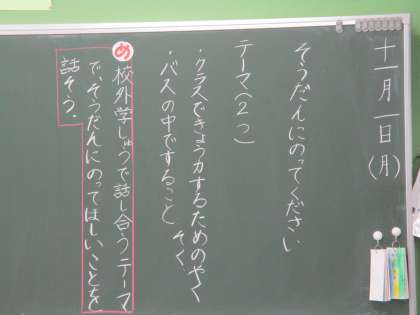 十一月一日(月)
そうだんにのってください
テーマ(2つ)
・クラスできょう力するためのやくそく
・バスの中ですること
め
校外学しゅうで話し合うテーマ
で、そうだんにのってほしいことを
話そう。